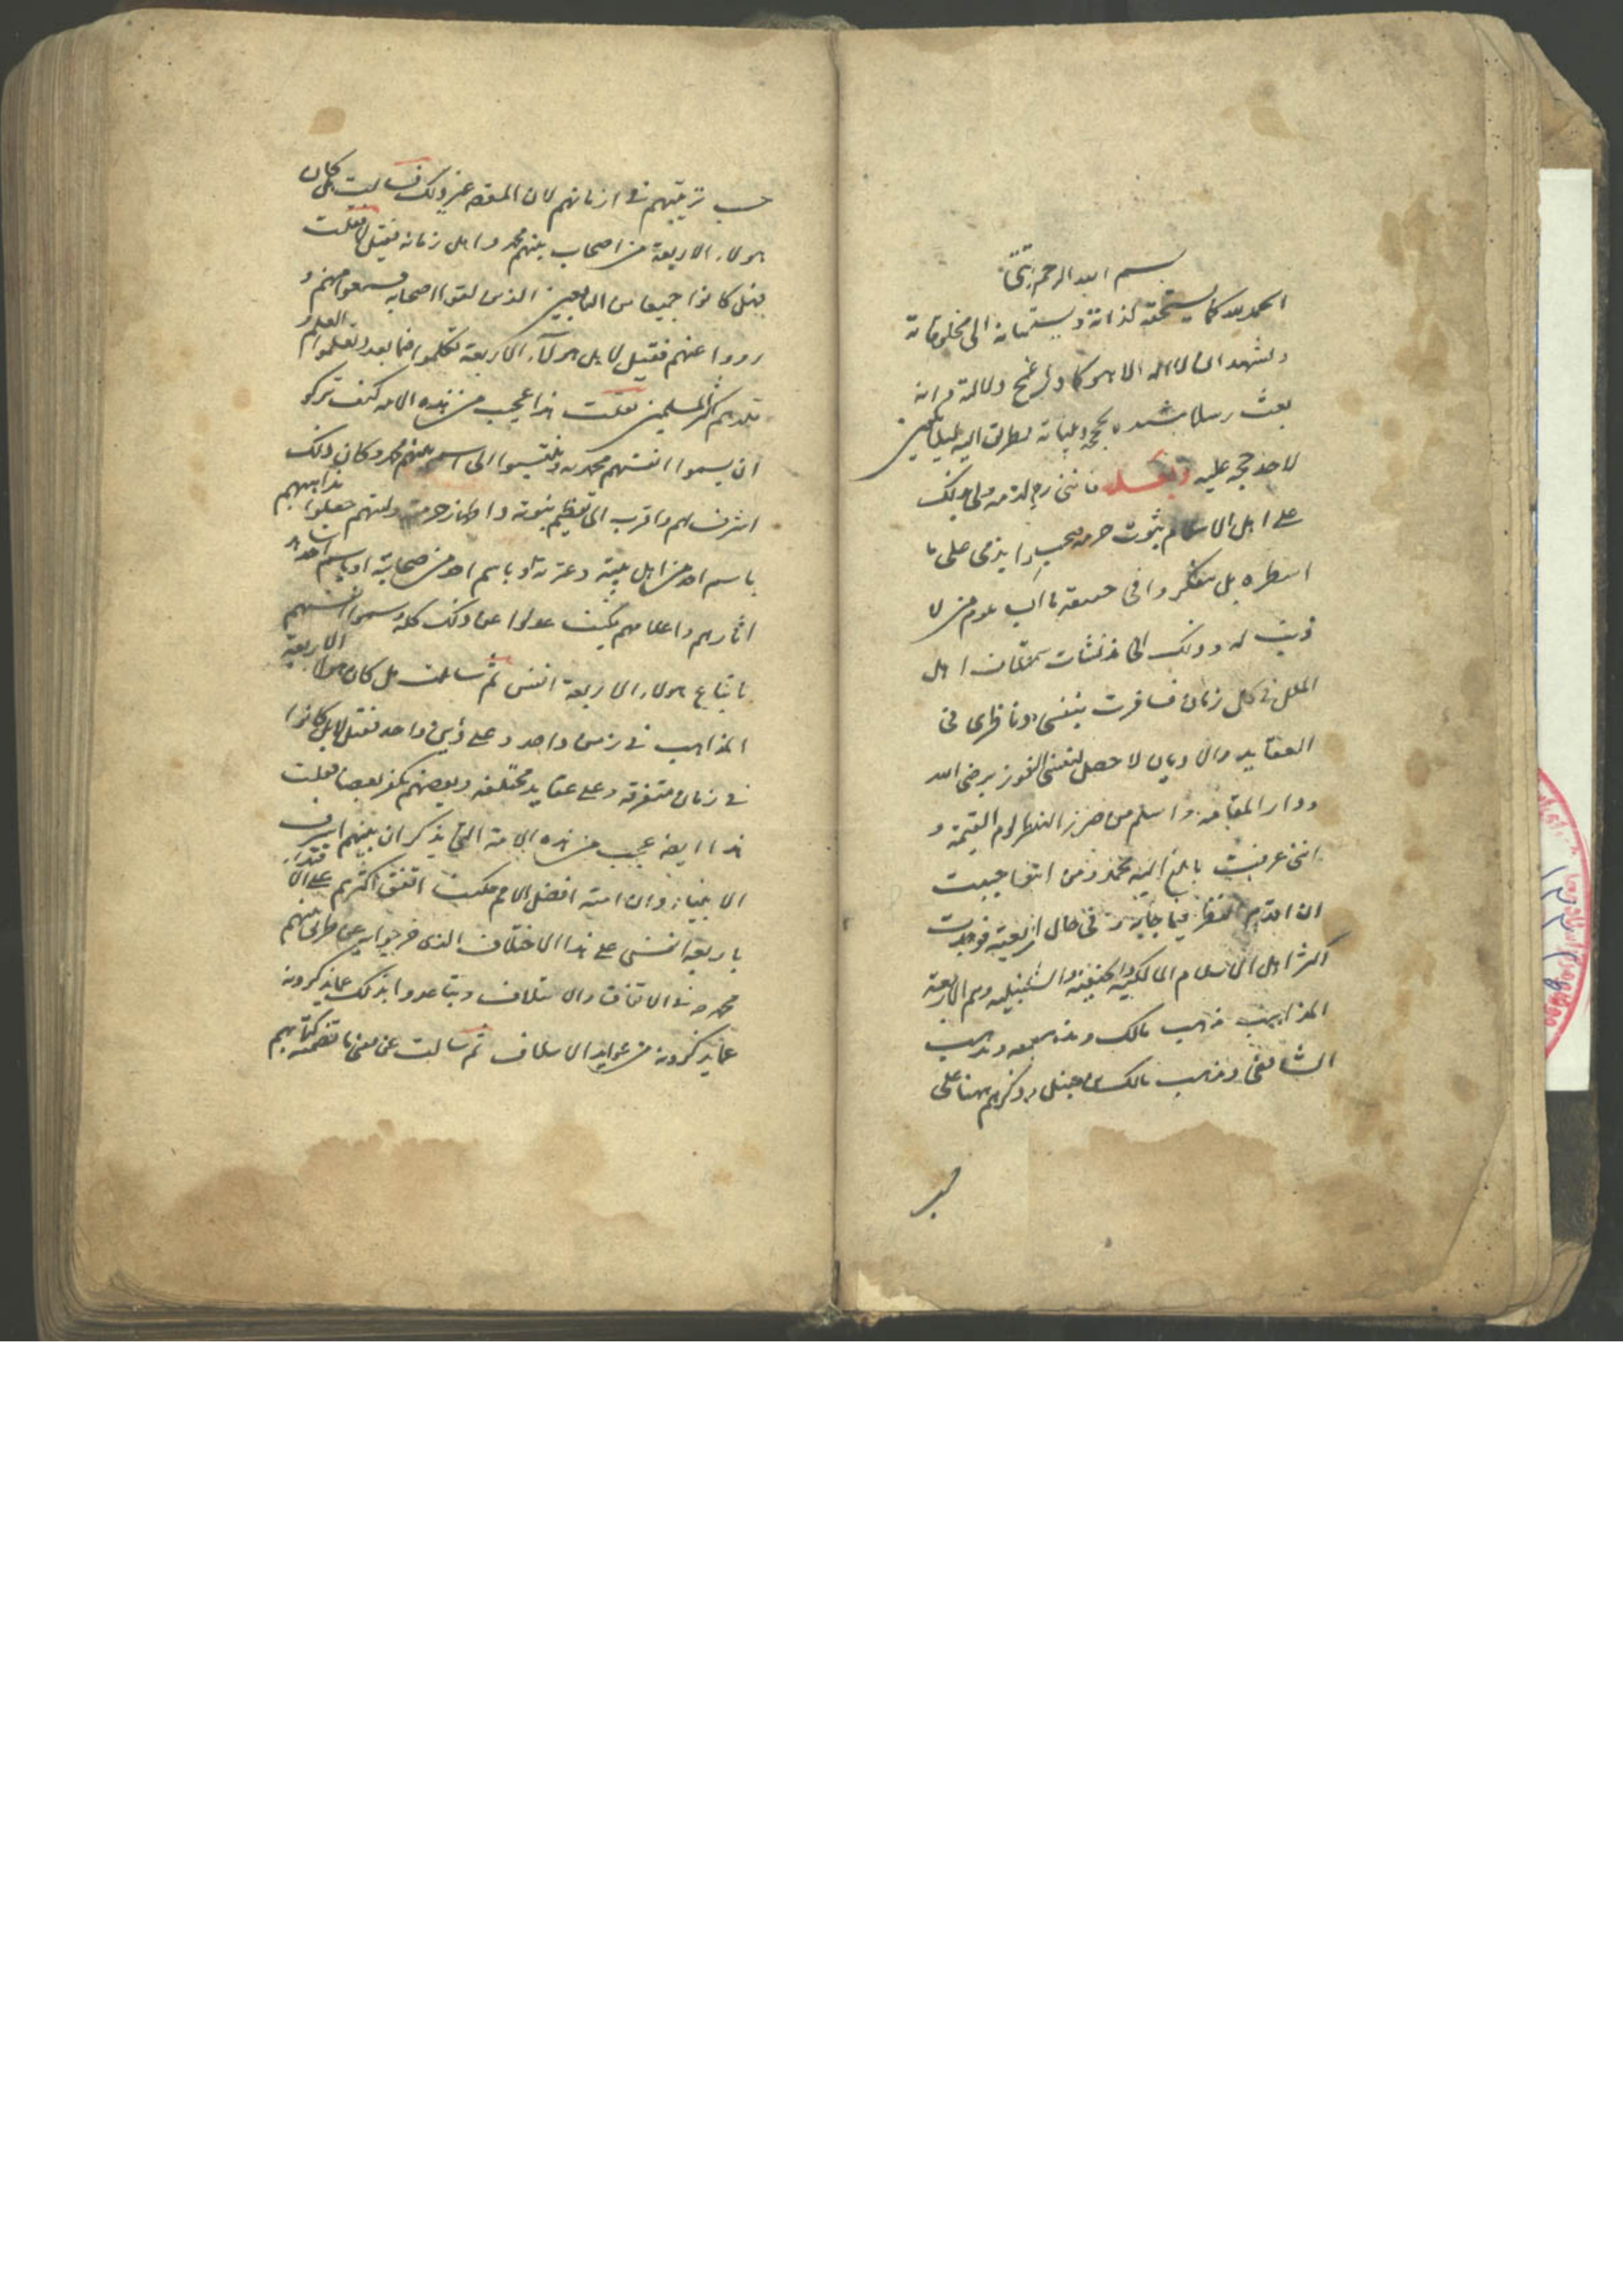 بسم الله الرحمن الرحيم
الحمد لله كما يستحقه لذاته و الى مخلوقاته
ونشهد ان لا اله الا هو كما دل واضح دلالته وانه
بعث رسلا بحججه وبيناته لطرق اليه لئلا يكون
لاحد حجة عليه وبعد فانني رجل ذمي ولى بذلك
على اهل الاسلام ثبوت حرمة يحب ما
اسطره بل يتفكروا فى حقيقة ما اكب علوم من لا
ذنب له وذلك انى مذ نشات اهل
الملل فى كل زمان فسافرت بنفسى وناظرى فى
العقايد والاديان لاحصل لنفسى الفوز برضى الله
ودار المقامة واسلم من ضرر الندامة يوم القيمة و
اننى عرفت بلغ اليه محمد ومن اتبعه
ان اقدم النظر فيما جاء به و فى حال شريعته فوجدت
اكثر اهل الاسلام المالكية والحنفية والشافعية والحنبلية وهم الاربعة
المذاهب مذهب مالك ومذهب ومذهب
الشافعى ومذهب مالك حنبل وذكرهم ههنا على
حسب
حسب ترتيبهم فى ازمانهم لان المقصد غير ذلك فسالت هل كان
هولاء الاربعة من اصحاب نبيهم محمد واهل زمانه فقيل لا فقلت
فهل كانوا جميعا من التابعين الذين لقوا اصحابه وسمعوا منهم و
رووا عنهم فقيل لا بل هولاء الاربعة تكلموا فيما بعد وتعلموا العلم و
قلدهم اكثر المسلمين فقلت هذا عجيب من هذه الامة كيف تركوا
ان يسموا انفسهم محمدية وينتسبوا الى اسم نبيهم محمد وكان ذلك
اشرف لهم واقرب الى تعظيم نبوته واظهار حرمته وليتهم جعلوا مذاهبهم
باسم احد من اهل بيته وعترته او باسم احد من صحابته او باسم احد شاهد
اثارهم واعلامهم فكيف عدلوا عن ذلك كله وسموا انفسهم
باتباع هولاء الاربعة انفس ثم سالت هل كان هولاء الاربعة
المذاهب فى زمن واحد وعلى دين واحد فقيل لا بل كانوا
فى زمان متفرقة وعلى عقايد مختلفة وبعضهم يكفر بعضا فقلت
هذا ايضا عجيب من هذه الامة التى يذكر ان نبيهم اشرف
الانبياء وان امته افضل الامم فكيف اتفق اكثرهم على الاقتداء
باربعة انفس على هذا الاختلاف الذى خرجوا به عن طريق نبيهم
محمد ص فى الاتفاق والايتلاف وتباعدوا بذلك عما يذكرونه
عما يذكرونه من عوايد الاسلاف ثم سالت عن معنى ما تضمنه كتابهم